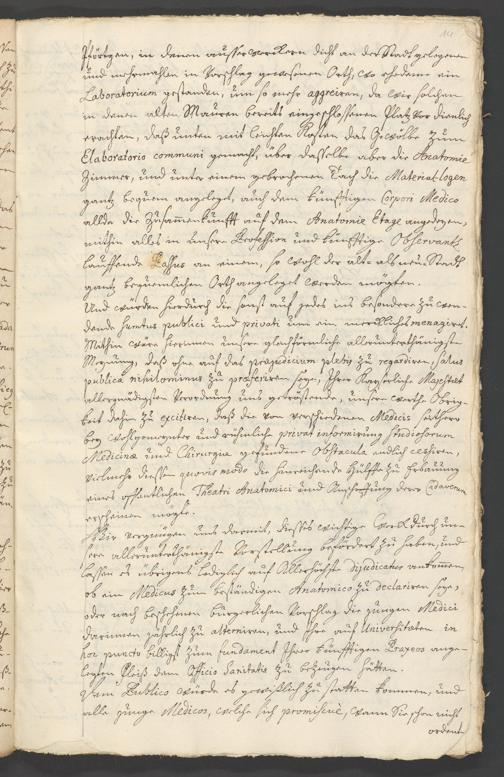 Pförtgen, in denen ausser vordern dicht an der Stadt gelegenen
und mehrmahlen in Vorschlag gewesenen Orth, wo ehedeme ein
Laboratorium gestanden, um so mehr aggreiren, da wir solchen
in denen alten Mauren bereits eingeschlossenen Platz vor dienlich
erachten, daß unten mit leichten Kosten das Gewölbe zum
Elaboratorio communi gemacht, über dasselbe aber die Anatomie
Zimmer, und unter einem gebrochenen Tach die Materialkogen
gantz bequem angeleget, auch dem künfftigen Corpori Medico
allda die Zusammenkünfft auf dem Anatomie Etage angedeyen,
mithin alles in unsere Profession und künfftige Observantz
lauffende Passus an einem, so wohl der alt- als neu-Stadt
gantz bequemlichen Orth angeleget werden mögten.
Und würden hierdurch die sonst auf jedes ins besondere zu wen-
dende Sumtus publici und privati um ein merckliches menagiret.
Mithin wäre hierinnen unser gleichförmliche allerunterthänigste
Meynung, daß ohne auf das præjudicium plebis zu regardiren, salus
publica nihilominus zu præferiren seye, Ihro Kayserliche Majestät
allergnädigste Verordnung uns getröstende, unsere werthe Obrig-
keit dahin zu excitiren, daß die von verschiedenen Medicis seithero
bey wohlgemeynter und rühmlicher privat informirung Studiosorum
Medicinæ und Chirurgiæ gefundene Obstacula endlich cessiren,
vielmehr diessen quovis modo die hinreichende Hülffe zu Erbauung
eines offentlichen Theatri Anatomici und Anschaffung derer Cadaverum
erscheinen mögte.
Wir vergnügen uns darmit, diesses wichtige Werck durch un-
sere allerunterthänigste Vorstellung befördert zu haben, und
lassen es übrigens lediglich auf Allerhöchste Dijudicatur ankommen,
ob ein Medicus zum beständigen Anatomico zu declariren seye,
oder nach beschehenen bürgerlichen Vorschlag die jungen Medici
darinnen jährlich zu alterniren, und Ihre auf Universitäten in
hoc puncto billigst zum fundament Ihrer künfftigen Praxeos ange-
legten Fleiß dem Officio Sanitatis zu bezeugen hätten.
Dem Publico würde es gewißlich zu statten kommen, und
alle junge Medicos, welche sich promittire, wann Sie schon nicht
ordent-